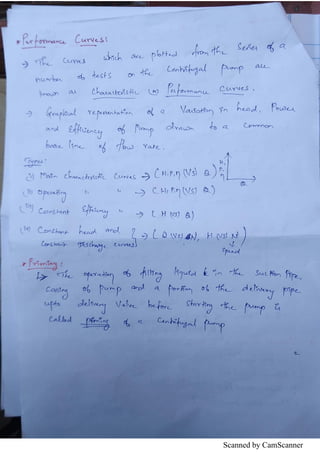 * Performance Curves:
→ The curves which are plotted from the series of a
number of tests on the Centrifugal pump are
known as Characteristic (or) Performance curves.
→ Graphical representation of a Variation in head, Power
and Efficiency of Pump drawn to a common
base line of flow rate.
Types:
(i) Main characteristic Curves → (H.P.η (VS) Q)
(ii) Operating " " → (H.P.η (VS) Q)
(iii) Constant Efficiency " → (H (VS) Q)
(iv) Constant head and } → (Q (VS) N, H (VS) N)
Constant Discharge curves
Speed
Q
* Priming:
↳ The operation of filling liquid in the suction Pipe,
Casing of pump and a portion of the delivery pipe
upto delivery Valve before Starting the pump is
Called priming of a Centrifugal pump
Scanned by CamScanner